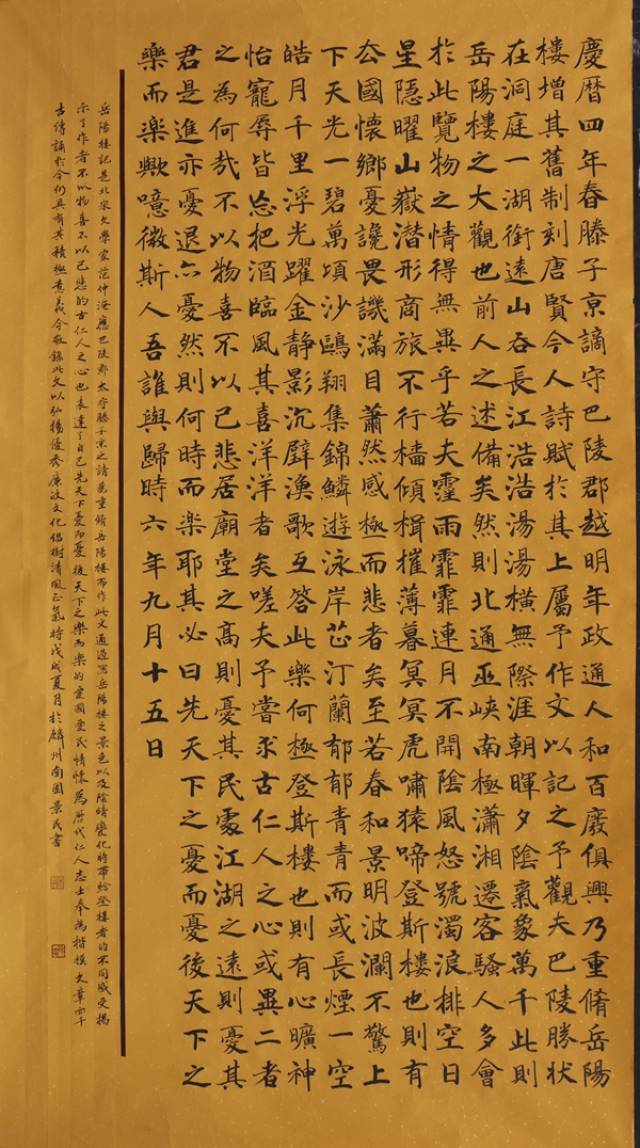 慶曆四年春滕子京謫守巴陵郡越明年政通人和百廢俱興乃重脩岳陽
樓增其舊制刻唐賢今人詩賦於其上屬予作文以記之予觀夫巴陵勝狀
在洞庭一湖銜遠山吞長江浩浩湯湯橫無際涯朝暉夕陰氣象萬千此則
岳陽樓之大觀也前人之述備矣然則北通巫峽南極瀟湘遷客騷人多會
於此覽物之情得無異乎若夫霪雨霏霏連月不開陰風怒號濁浪排空日
星隱曜山嶽潛形商旅不行檣傾楫摧薄暮冥冥虎嘯猿啼登斯樓也則有
去國懷鄉憂讒畏譏滿目蕭然感極而悲者矣至若春和景明波瀾不驚上
下天光一碧萬頃沙鷗翔集錦鱗遊泳岸芷汀蘭郁郁青青而或長煙一空
皓月千里浮光躍金靜影沉璧漁歌互答此樂何極登斯樓也則有心曠神
怡寵辱皆忘把酒臨風其喜洋洋者矣嗟夫予嘗求古仁人之心或異二者
之為何哉不以物喜不以己悲居廟堂之高則憂其民處江湖之遠則憂其
君是進亦憂退亦憂然則何時而樂耶其必曰先天下之憂而憂後天下之
樂而樂歟噫微斯人吾誰與歸時六年九月十五日
岳陽樓記是北宋文學家范仲淹應巴陵郡太守滕子京之請為重脩岳陽樓而作此文通過寫岳陽樓之景色以及陰晴變化時帶給登樓者的不同感受揭
示了作者不以物喜不以己悲的古仁人之心也表達了自己先天下之憂而憂後天下之樂而樂的愛國愛民情懷為歷代仁人志士奉為楷模文章千
古傳誦於今仍具有其積極意義今敬錄此文以弘揚優秀廉政文化倡樹清風正氣時戊戌夏月於麟州南園景民書